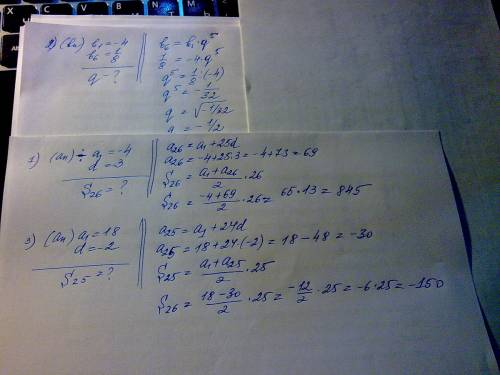 2) (bn) b₁ = -4
b₆ = 1/8
q - ?
b₆ = b₁·q⁵
1/8 = -4·q⁵
q⁵ = 1/8 : (-4)
q⁵ = -1/32
q = √-1/32
q = -1/2
1) (an) ÷ a₁ = -4
d = 3
S₂₆ = ?
a₂₆ = a₁ + 25d
a₂₆ = -4 + 25·3 = -4 + 73 = 69
S₂₆ = (a₁ + a₂₆)/2 · 26
S₂₆ = (-4 + 69)/2 · 26 = 65·13 = 845
3) (an) a₁ = 18
d = -2
S₂₅ = ?
a₂₅ = a₁ + 24d
a₂₅ = 18 + 24·(-2) = 18 - 48 = -30
S₂₅ = (a₁ + a₂₅)/2 · 25
S₂₆ = (18 - 30)/2 · 25 = -12/2 · 25 = -6·25 = -150